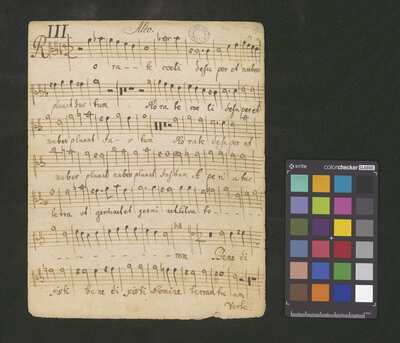 III. Alto.
R o ra - - te coeli desuper et nubes
pluant justum - Rorate coe li desuper et
nubes pluant ju - stum Rorate desuper et
nubes pluant nubes pluant Justum
terra et germinet germi
- - - - - - - rem Bene di
xisti bene di xisti Domine terram tu am
Verte
x-rite colorchecker CLASSIC